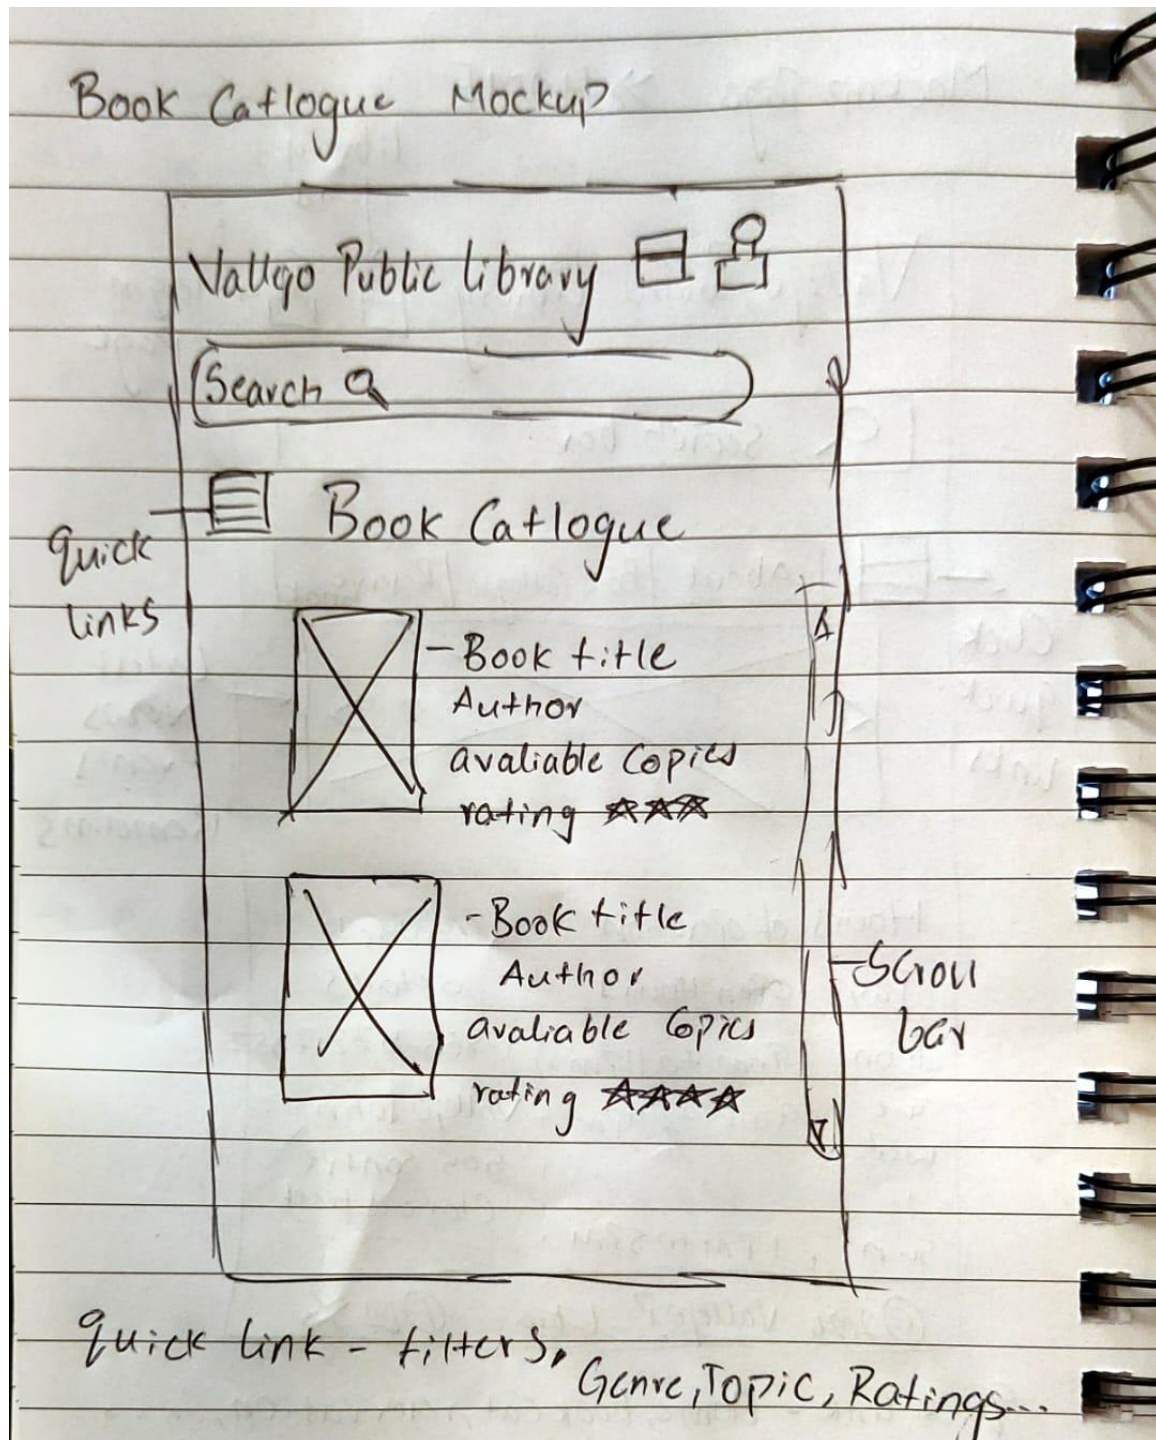 Book Catlogue Mockup
Vallejo Public library
Search
Book Catlogue
quick
links
- Book title
Author
avaliable Copies
rating
- Book title
Author
avaliable Copies
rating
Scroll
bar
quick link - filters,
Genre, Topic, Ratings...